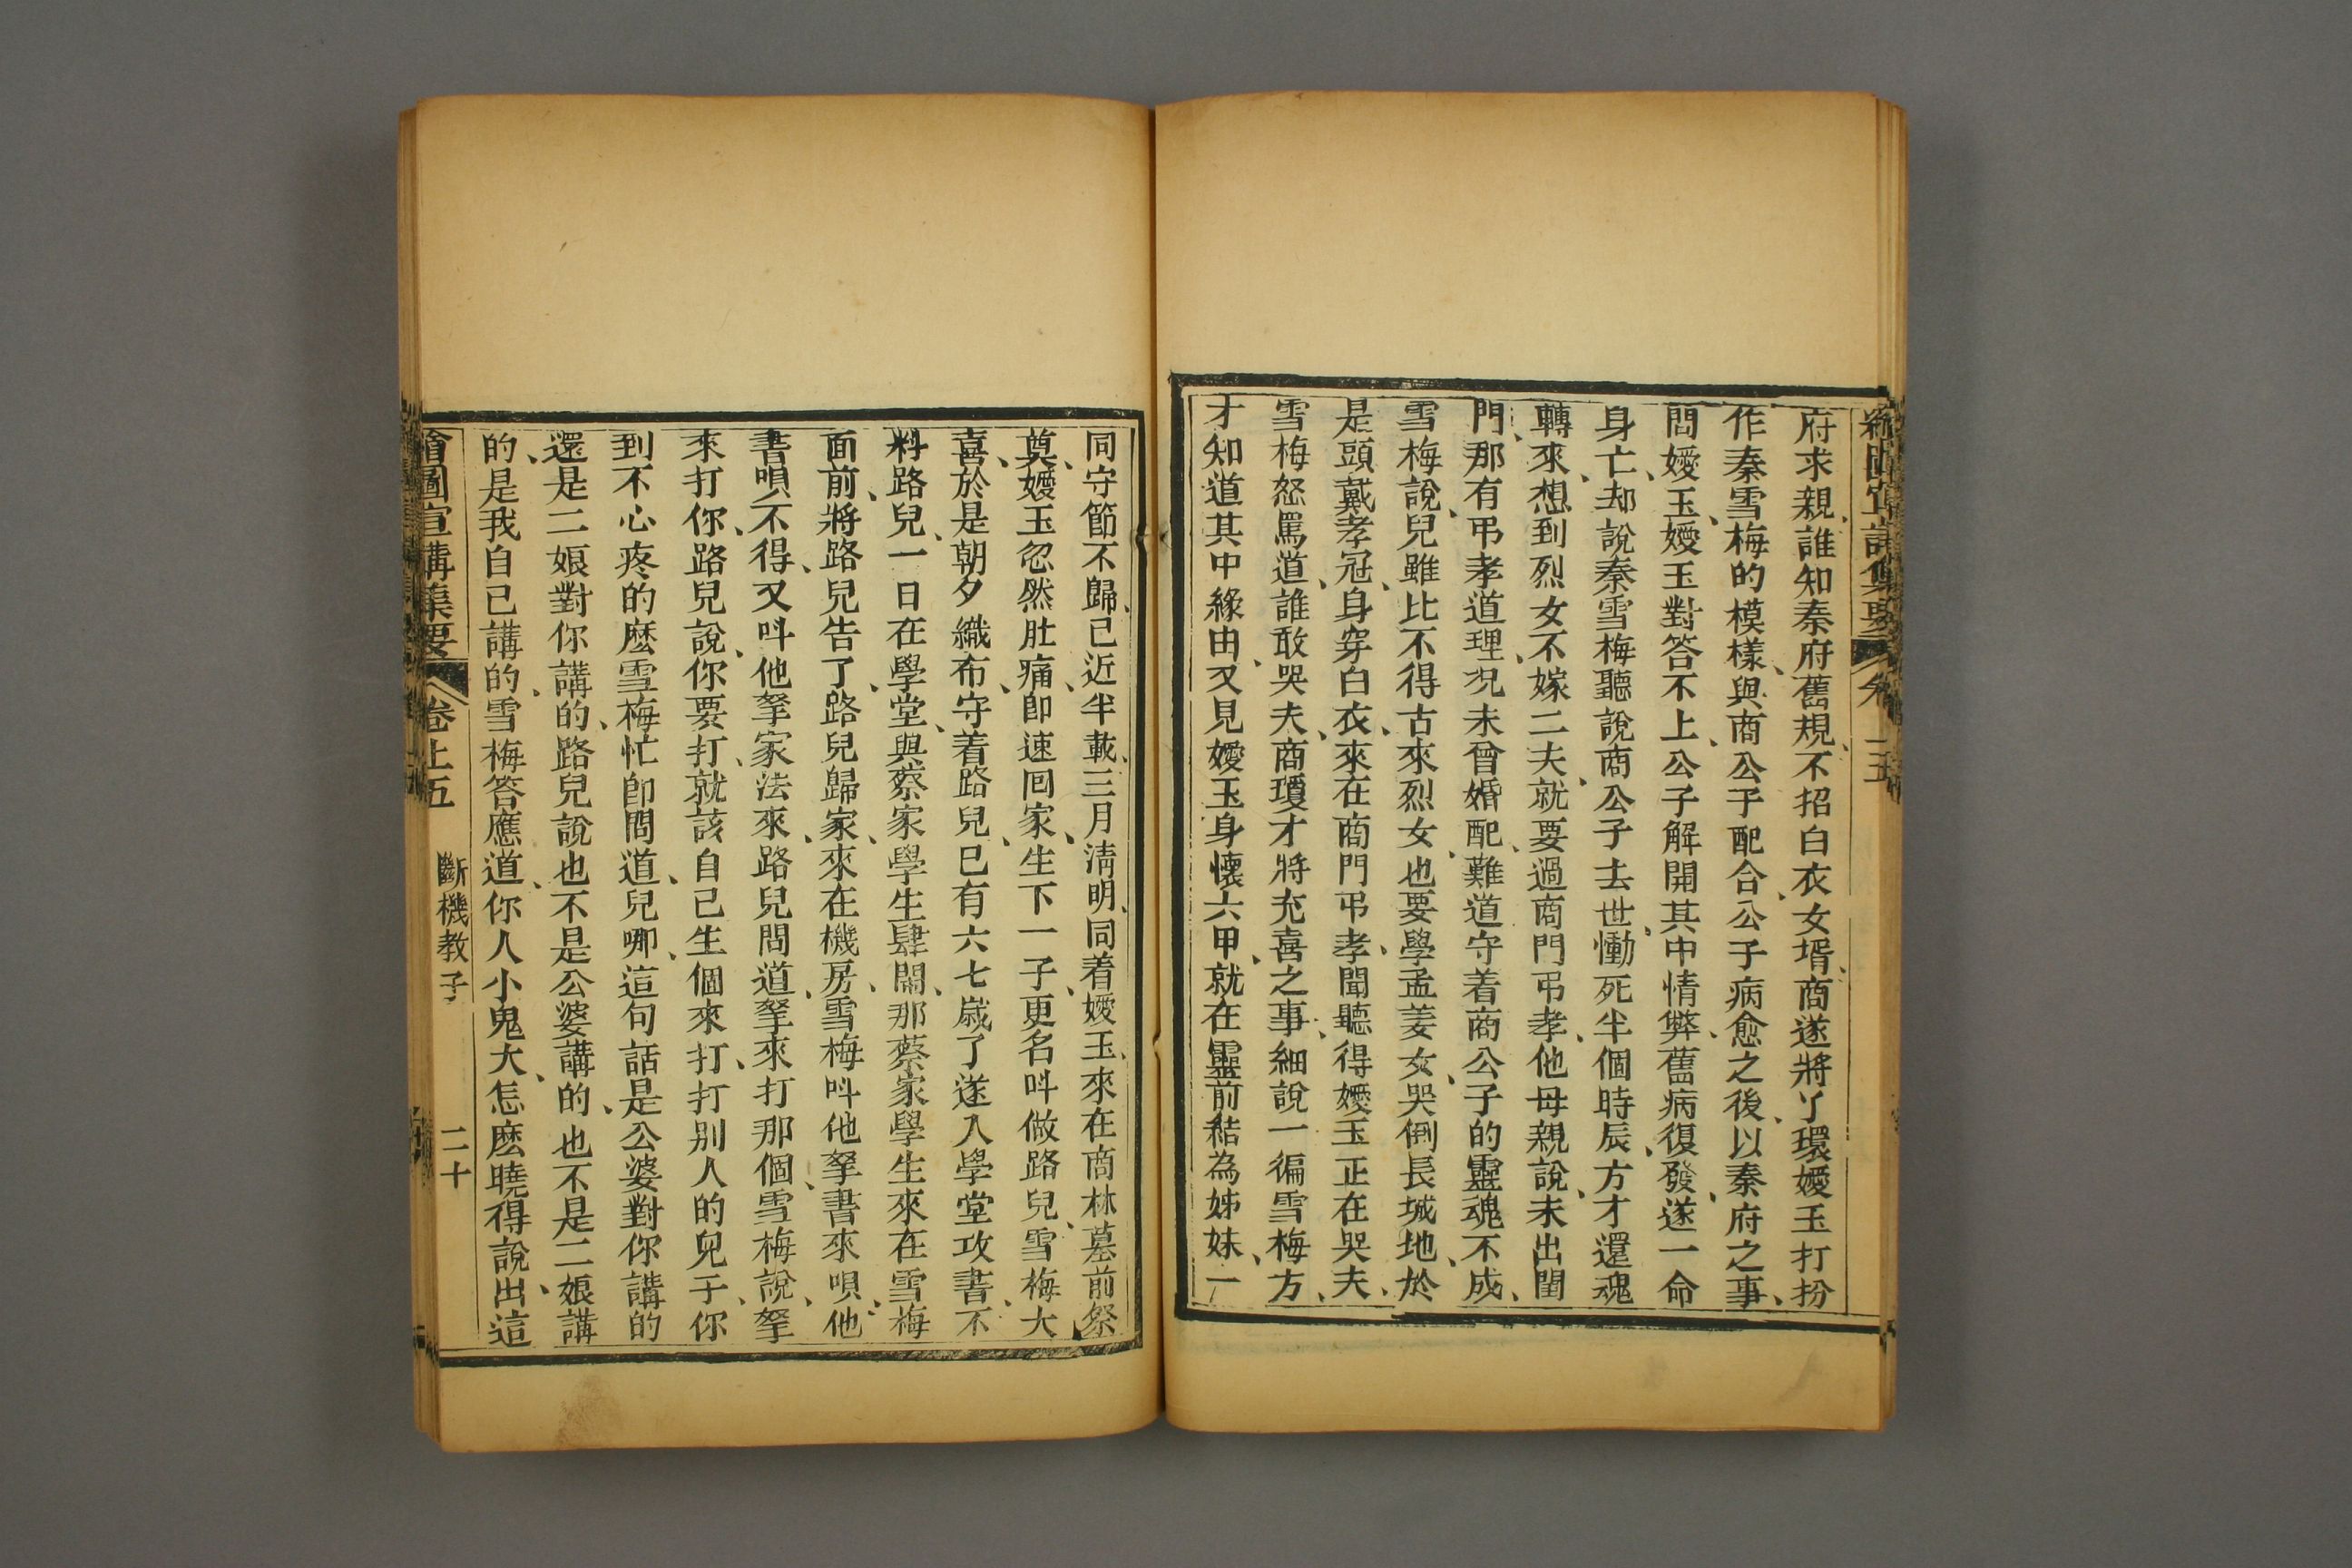 府求親、誰知秦府舊規、不招白衣女壻、商遂將丫環嬡玉打扮
作秦雪梅的模樣、與商公子配合、公子病愈之後、以秦府之事、
問嬡玉、嬡玉對答不上、公子解開其中情弊、舊病復發、遂一命
身亡、却說秦雪梅聽說商公子去世、慟死半個時辰、方才還魂
轉來、想到烈女不嫁二夫、就要過商門弔孝、他母親說、未出閨
門、那有弔孝道理、况未曾婚配、難道守着商公子的靈魂不成、
雪梅說、兒雖比不得古來烈女、也要學孟姜女、哭倒長城地、於
是頭戴孝冠、身穿白衣、來在商門弔孝、聞聽得嬡玉正在哭夫、
雪梅怒罵道、誰敢哭夫、商瓊才將充喜之事、細說一徧、雪梅方、
才知道其中緣由、又見嬡玉身懷六甲、就在靈前結為姊妹、一
同守節不歸、已近半載、三月清明、同着嬡玉、來在商林墓前祭
奠、嬡玉忽然肚痛、卽速回家、生下一子、更名呌做路兒、雪梅大
喜、於是朝夕織布、守着路兒、已有六七歲了、遂入學堂攻書、不
料路兒、一日在學堂、與蔡家學生肆鬧、那蔡家學生來在雪梅
面前、將路兒告了、路兒歸家、來在機房、雪梅呌他拏書來唄、他
書唄不得、又呌他拏家法來、路兒問道、拏來打那個、雪梅說、拏
來打你、路兒說、你要打、就該自己生個來打、打别人的兒子、你
到不心疼的麽、雪梅忙卽問道、兒哪、這句話是公婆對你講的
還是二娘對你講的、路兒說也不是公婆講的、也不是二娘講
的、是我自已講的、雪梅答應道、你人小鬼大、怎麽曉得說出、這
繪圖宣講集要 卷上五 斷機教子 二十